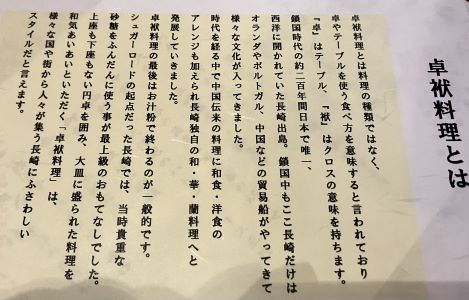 卓袱料理とは
卓袱料理とは料理の種類ではなく、
卓やテーブルを使う食べ方を意味すると言われており
「卓」はテーブル、「袱」はクロスの意味を持ちます。
鎖国時代の約二百年間日本で唯一、
西洋に開かれていた長崎出島。鎖国中もここ長崎だけは
オランダやポルトガル、中国などの貿易船がやってきて
様々な文化が入ってきました。
時代を経る中で中国伝来の料理に和食・洋食の
アレンジも加えられ長崎独自の和・華・蘭料理へと
発展していきました。
卓袱料理の最後はお汁粉で終わるのが一般的です。
シュガーロードの起点だった長崎では、当時貴重な
砂糖をふんだんに使う事が最上級のおもてなしでした。
上座も下座もない円卓を囲み、大皿に盛られた料理を
和気あいあいといただく「卓袱料理」は、
様々な国や街から人々が集う長崎にふさわしい
スタイルだと言えます。